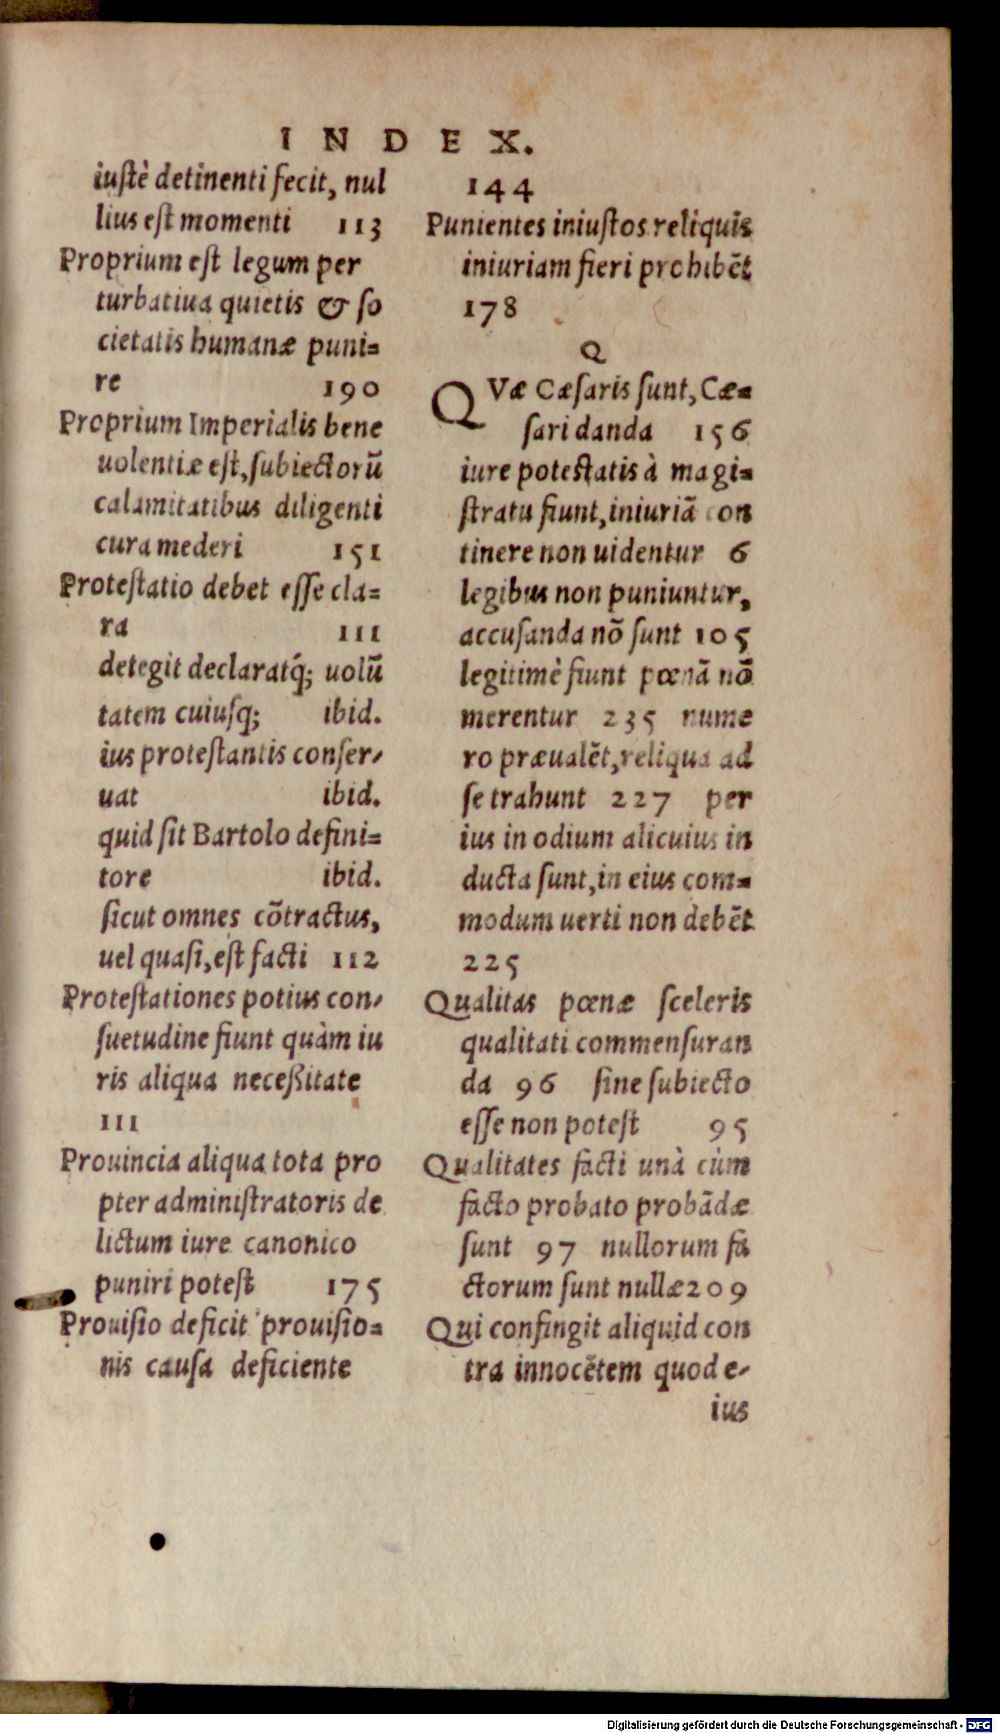 INDEX.
iustè detinenti fecit, nul
lius est momenti 113
Proprium est legum per
turbatiua quietis & so
cietatis humanæ puni=
re 190
Proprium Imperialis bene
uolentiæ est, subiectorũ
calamitatibus diligenti
cura mederi 151
Protestatio debet esse cla=
ra 111
detegit declaratq́; uolũ
tatem cuiusq; ibid.
ius protestantis conser-
uat ibid.
quid sit Bartolo defini=
tore ibid.
sicut omnes cõtractus,
uel quasi, est facti 112
Protestationes potius con-
suetudine fiunt quàm iu
ris aliqua neceßitate
111
Prouincia aliqua tota pro
pter administratoris de
lictum iure canonico
puniri potest 175
Prouisio deficit prouisio=
nis causa deficiente
144
Punientes iniustos reliquis
iniuriam fieri prohibẽt
178
Q
QVæ Cæsaris sunt, Cæ=
sari danda 156
iure potestatis à magi=
stratu fiunt, iniuriã con
tinere non uidentur 6
legibus non puniuntur,
accusanda nõ sunt 105
legitimè fiunt pœnã nõ
merentur 235 nume
ro præualẽt, reliqua ad
se trahunt 227 per
ius in odium alicuius in
ducta sunt, in eius com=
modum uerti non debẽt
225
Qualitas pœnæ sceleris
qualitati commensuran
da 96 sine subiecto
esse non potest 95
Qualitates facti unà cùm
facto probato probãdæ
sunt 97 nullorum fa
ctorum sunt nullæ 209
Qui confingit aliquid con
tra innocẽtem quod e-
ius
Digitalisierung gefördert durch die Deutsche Forschungsgemeinschaft - DFG